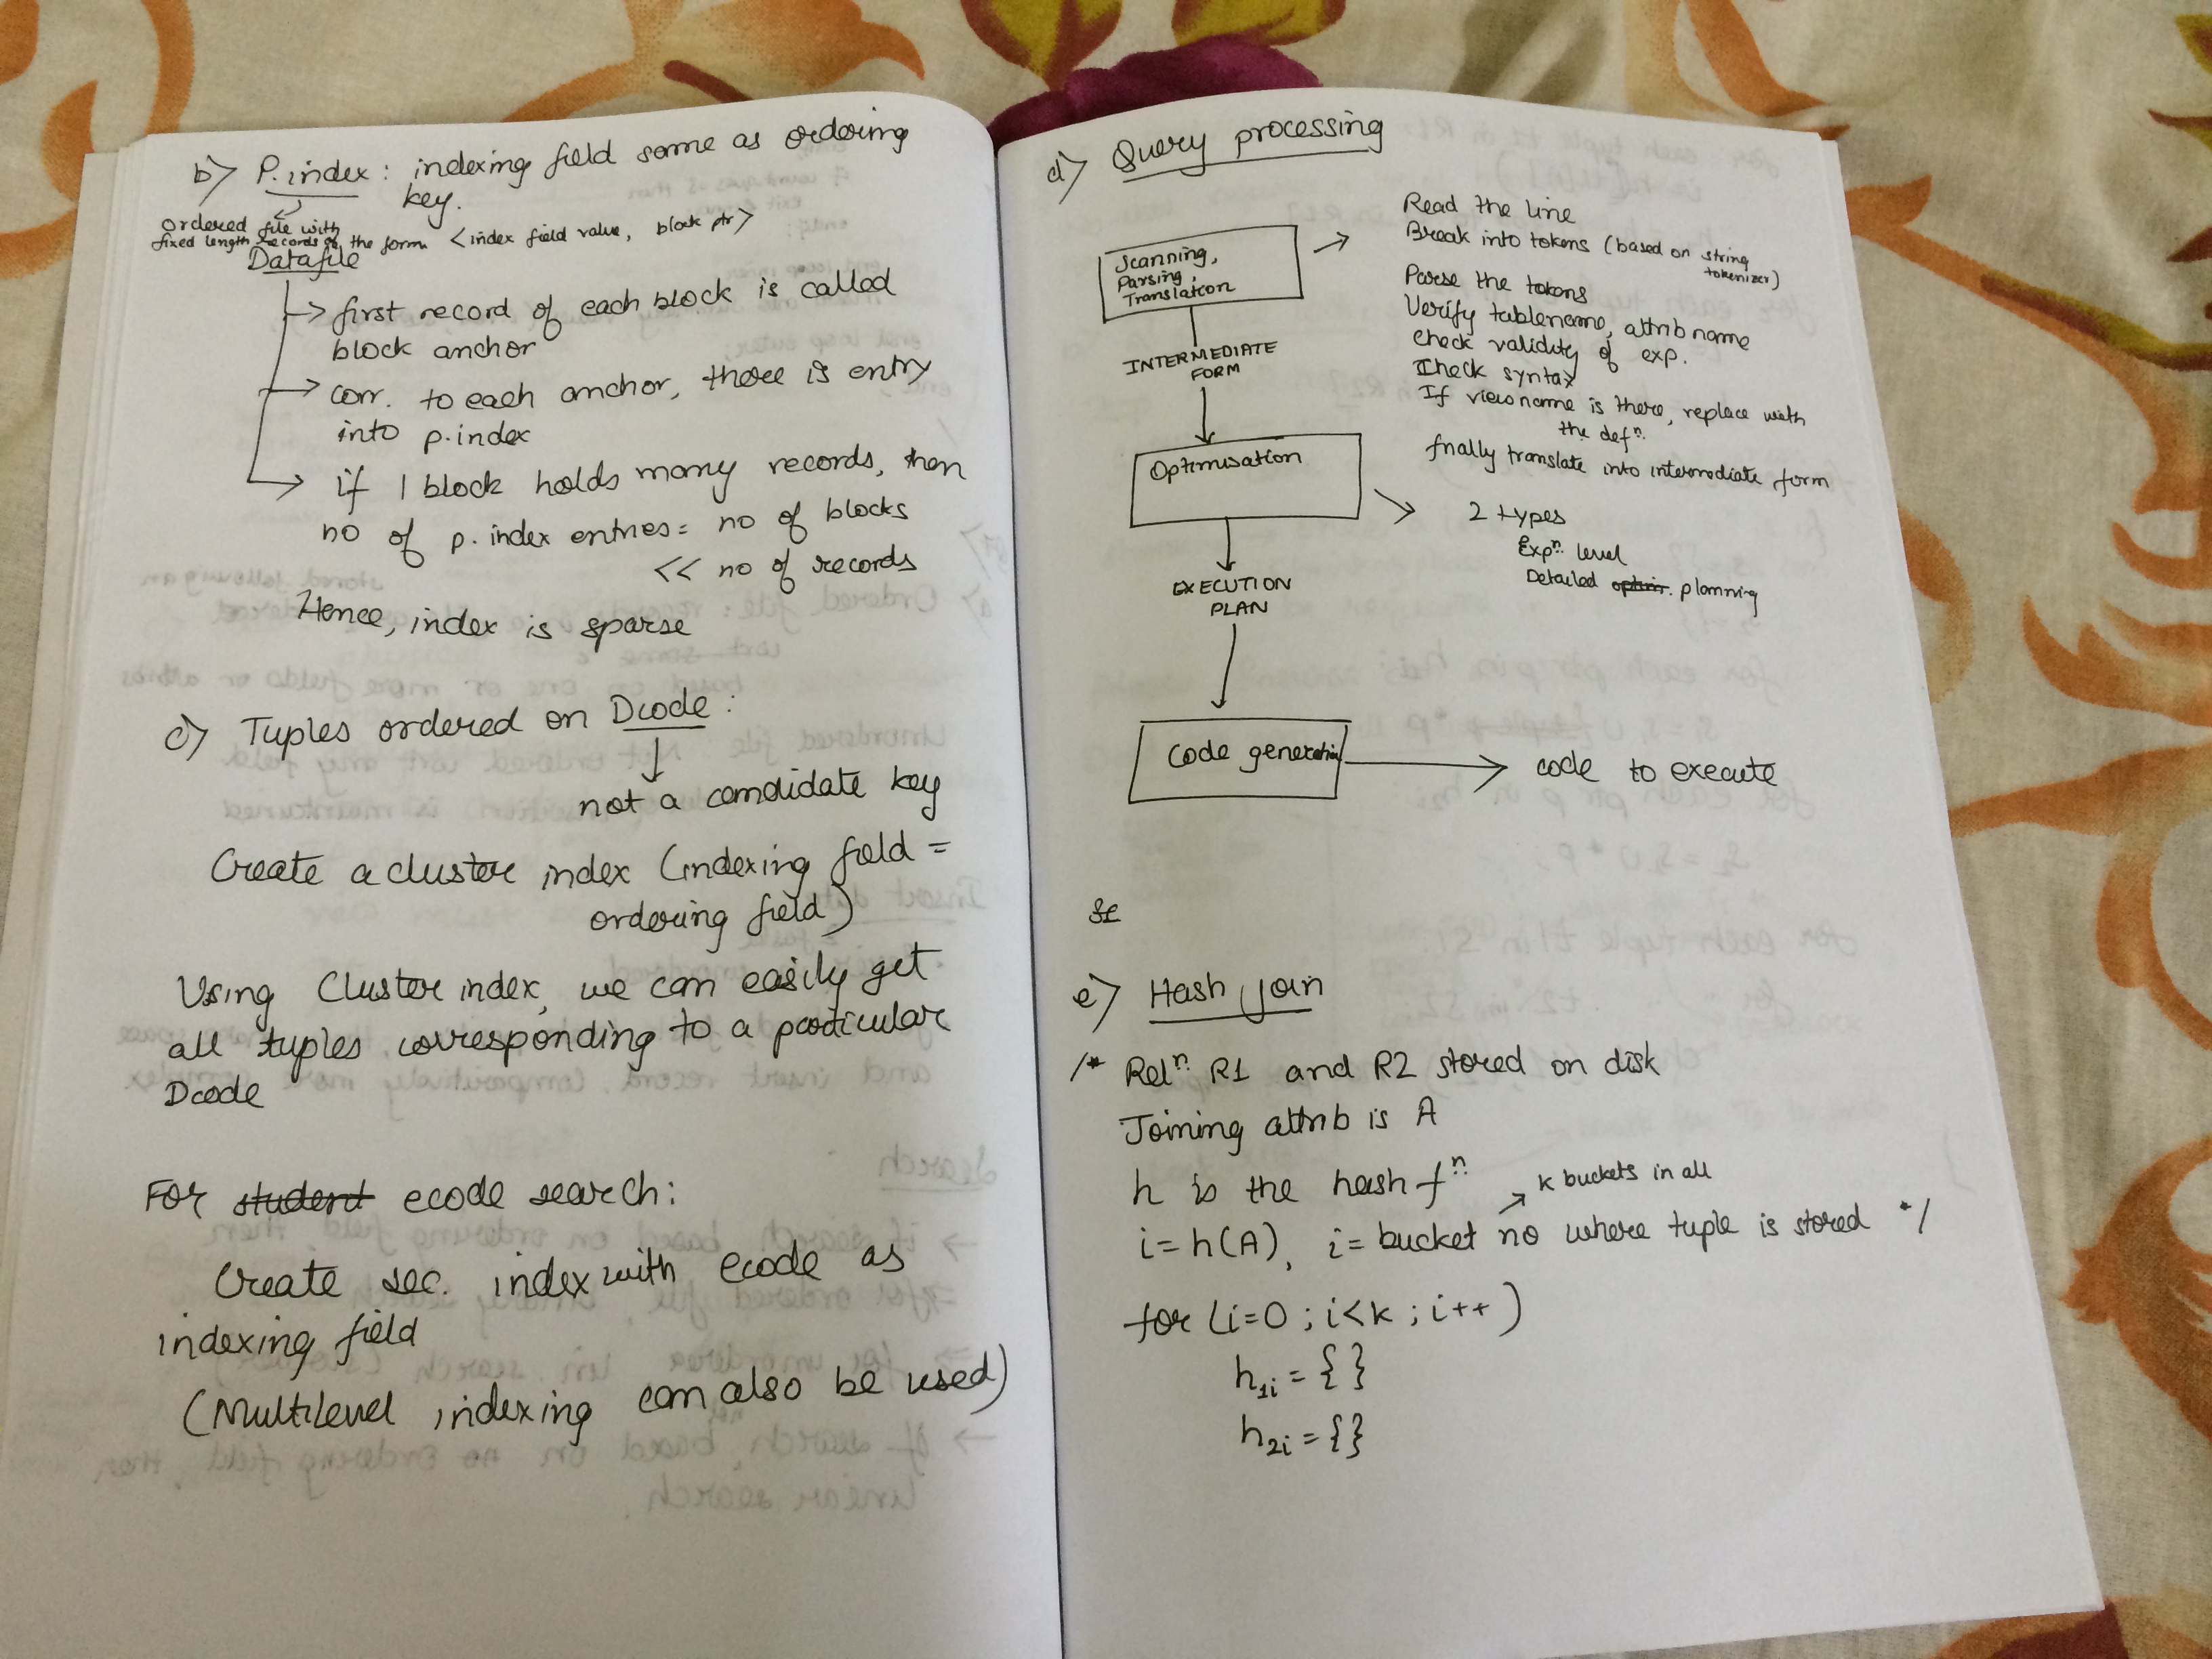 b) P.index: indexing field same as ordering
key.
ordered file with
fixed length records of the form <index field value, block ptr>
Datafile
→ first record of each block is called
block anchor
→ corr. to each anchor, there is entry
into p.index
→ if 1 block holds many records, then
no of p. index entries = no of blocks
<< no of records
Hence, index is sparse
c) Tuples ordered on Dcode:
not a candidate key
Create a cluster index (indexing field =
ordering field)
Using Cluster index, we can easily get
all tuples corresponding to a particular
Dcode
For student ecode search:
Create sec. index with ecode as
indexing field
(Multilevel indexing can also be used)
d) Query processing
Scanning,
Parsing,
Translation
→ Read the line
Break into tokens (based on string
tokenizer)
Parse the tokens
Verify tablename, attrib name
check validity of exp.
Check syntax
If viewname is there, replace with
the defn.
fnally translate into intermediate form
INTERMEDIATE
FORM
Optimisation
→ 2 types
Expn. level
Detailed optim. planning
EXECUTION
PLAN
Code generation
→ code to execute
e) Hash join
/* Reln R1 and R2 stored on disk
Joining attrib is A
h is the hash fn
→ k buckets in all
i = h(A), i = bucket no where tuple is stored */
for (i=0 ; i<k ; i++)
h1i = { }
h2i = {}